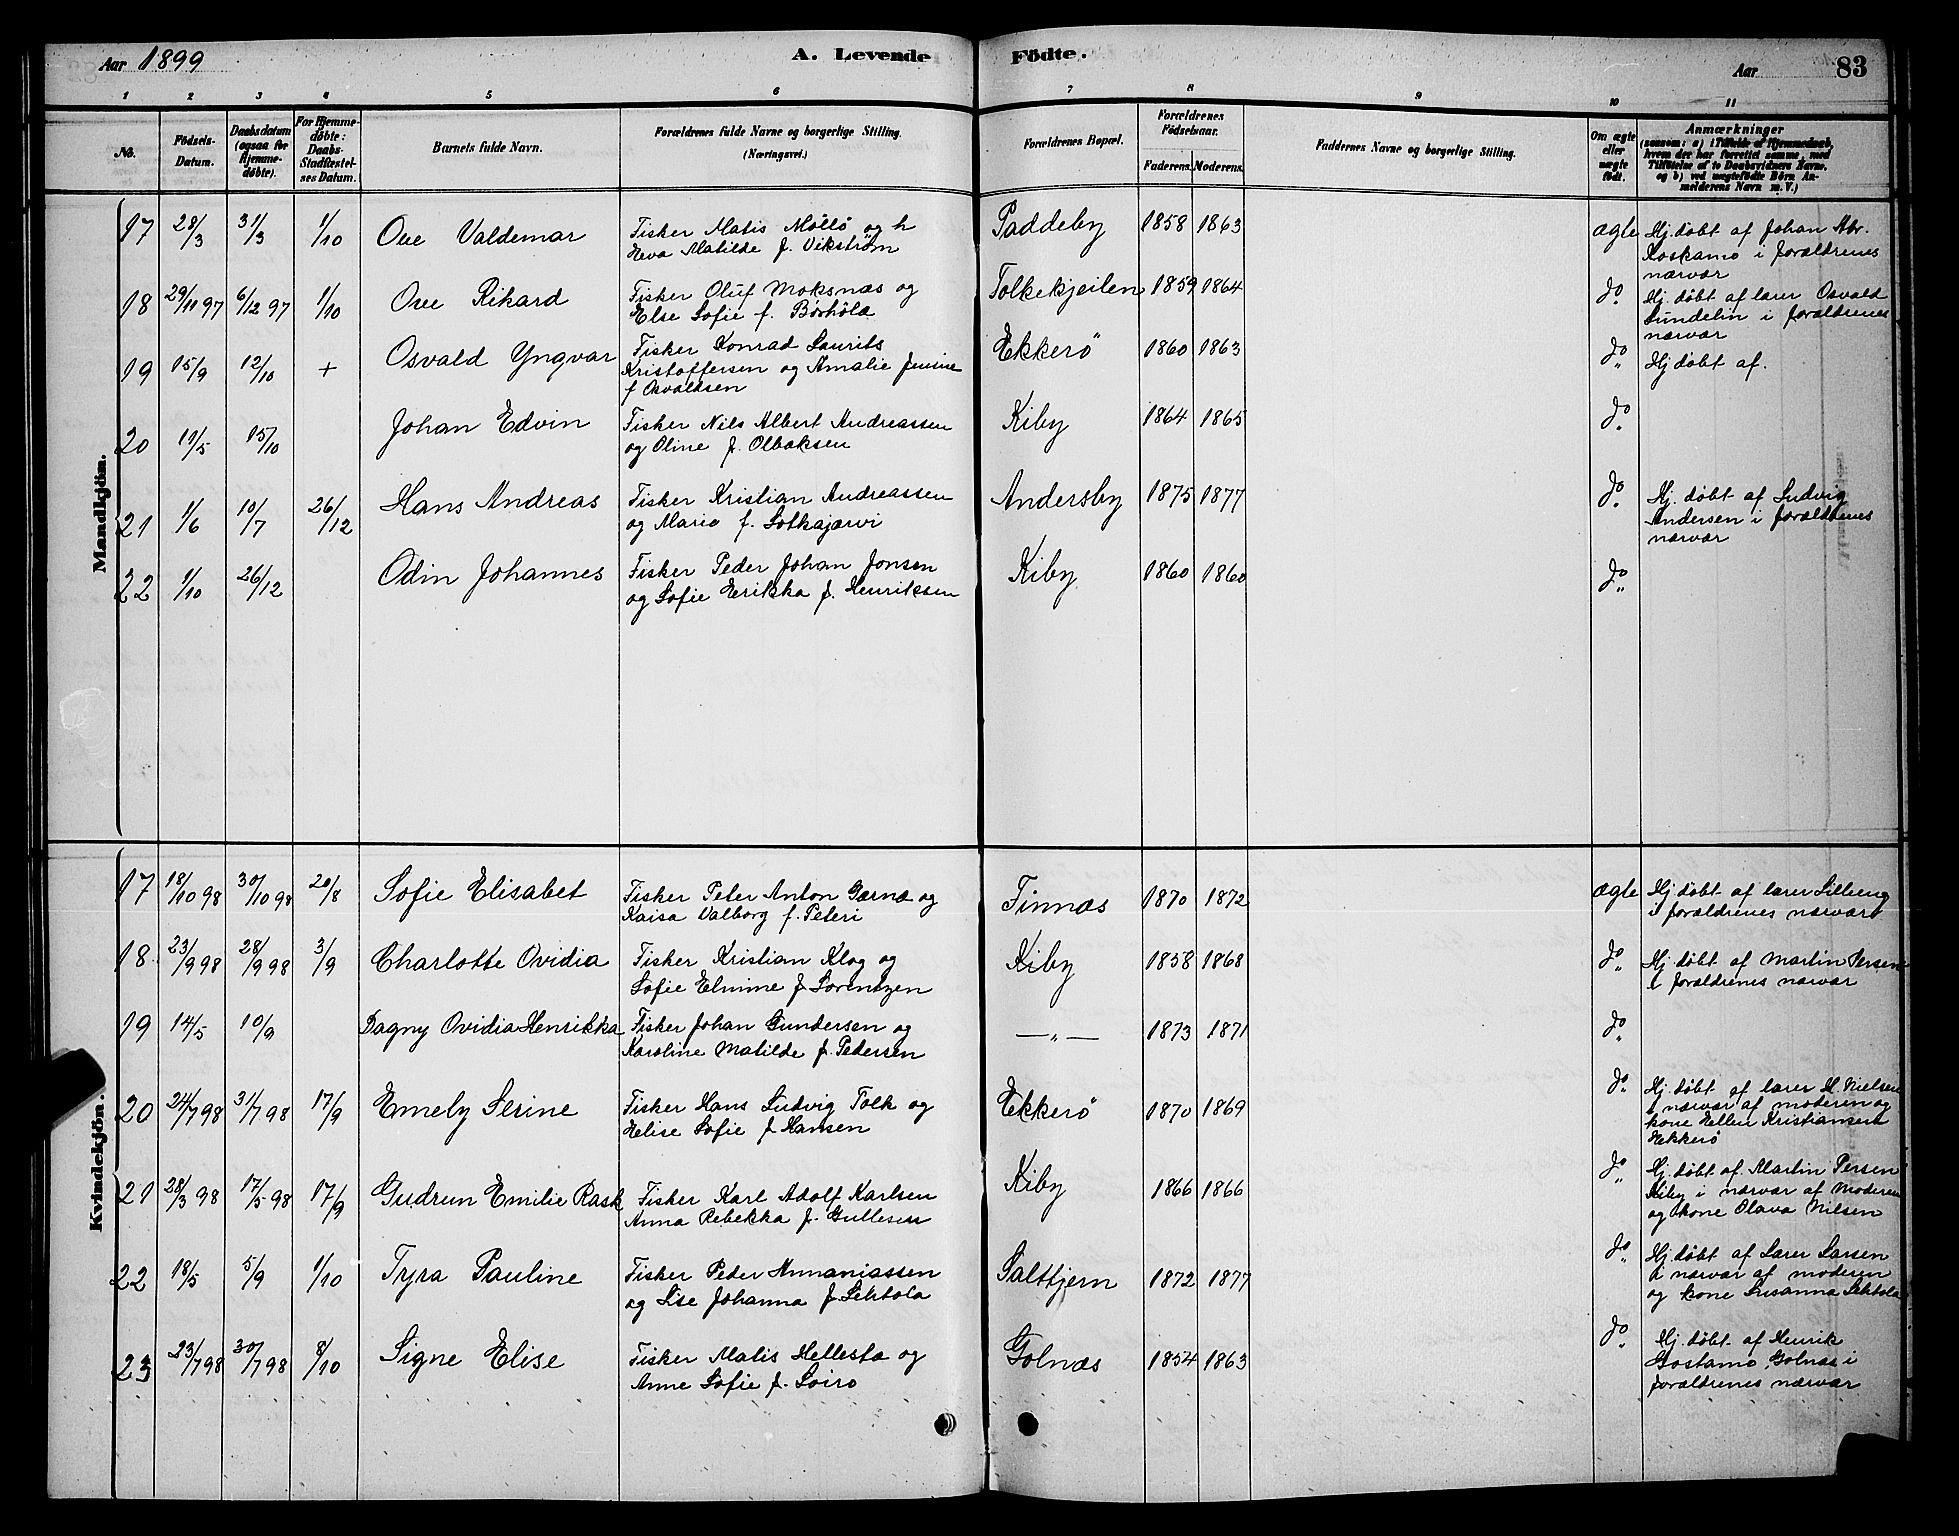 Aar 1899
A. Levende Födte.
Aar 83
1 2 3 4 5 6 7 8 9 10 11
No.
Födsels-Datum.
Daabsdatum (ogsaa for Hjemme-døbte).
For Hjemme-døbte: Daabs-Stadfæstel-ses Datum.
Barnets fulde Navn.
Forældrenes fulde Navne og borgerlige Stilling. (Næringsvei.)
Forældrenes Bopæl.
Forældrenes Födselsaar.
Faderens. Moderens.
Faddernes Navne og borgerlige Stilling.
Om ægte eller uægte födt.
Anmærkninger
(saasom: a) i Tilfælde af Hjemmedaab, hvem der har forrettet samme, med Tilföielse af to Daabsvidners Navne, og b) ved uægtefödte Börn Anmelderens Navn m. V.)
Mandkjön.
17 28/3 31/3 1/10 Ove Valdemar Fisker Matis Möllö og h
Eva Matilde f. Vikström Paddeby 1858 1863 ægte Hj. døbt af Johan Abr.
Koskamo i forældrenes
nærvær
18 29/11 97 6/12 97 1/10 Ove Rikard Fisker Oluf Moksnæs og
Else Sofie f. Børhöla Tolkekjeilen 1859 1864 do. Hj. døbt af lærer Osvald
Sundelin i forældrenes
nærvær
19 15/9 12/10 + Osvald Yngvar Fisker Konrad Laurits
Kristoffersen og Amalie Jenine
f Osvaldsen Ekkerö 1860 1863 do Hj døbt af.
20 11/5 15/10 Johan Edvin Fisker Nils Albert Andreassen
og Oline f. Olbaksen Kiby 1864 1865 do.
21 1/6 10/7 26/12 Hans Andreas Fisker Kristian Andreassen
og Marie f. Sotkajærvi Andersby 1875 1877 do. Hj. døbt af Ludvig
Andersen i forældrenes
nærvær
22 1/10 26/12 Odin Johannes Fisker Peder Johan Jonsen
og Sofie Erikka f. Henriksen Kiby 1860 1860 do
Kvindekjön.
17 18/10 98 30/10 98 20/8 Sofie Elisabet Fisker Peter Anton Gærnæ og
Kaisa Valborg f. Peteri Finnæs 1870 1872 ægte Hj. døbt af lærer Lilleng
i forældrenes nærvær
18. 23/9 98 28/9 98 3/9 Charlotte Ovidia Fisker Kristian Klog og
Sofie Elmine f Lorentzen Kiby 1858 1868 do Hj. døbt af Martin Persen
i forældrenes nærvær
19 14/5 10/9 Dagny Ovidia Henrikka Fisker Johan Gundersen og
Karoline Matilde f. Pedersen —„— 1873 1871 do
20 24/7 98 31/7 98 17/9 Emely Serine Fisker Hans Ludvig Tolk og
Elise Sofie f Hansen Ekkerö 1870 1869 do. Hj. døbt af lærer H. Nielsen
i nærvær af moderen og
kone Ellen Kristiansen
Ekkerö
21 28/3 98 17/5 98 17/9 Gudrun Emilie Rask Fisker Karl Adolf Karlsen
Anna Rebekka f. Gullesen Kiby 1866 1866 do Hj. døbt af Martin Persen
Kiby i nærvær af Moderen
og kone Olava Nilsen
22 18/5 5/9 1/10 Tyra Pauline Fisker Peder Annaniassen
og Lise Johanna f. Lehtola Saltkjern 1872 1877 do Hj. døbt af Lærer Larsen
i nærvær af moderen
og kone Susanna Lehtola
23 23/7 98 30/7 98 8/10 Signe Elise Fisker Matis Hellesta og
Anne Sofie f. Soiro Golnæs 1854 1863 do. Hj. døbt af Henrik
Gostamo Golnæs i
forældrenes nærvær